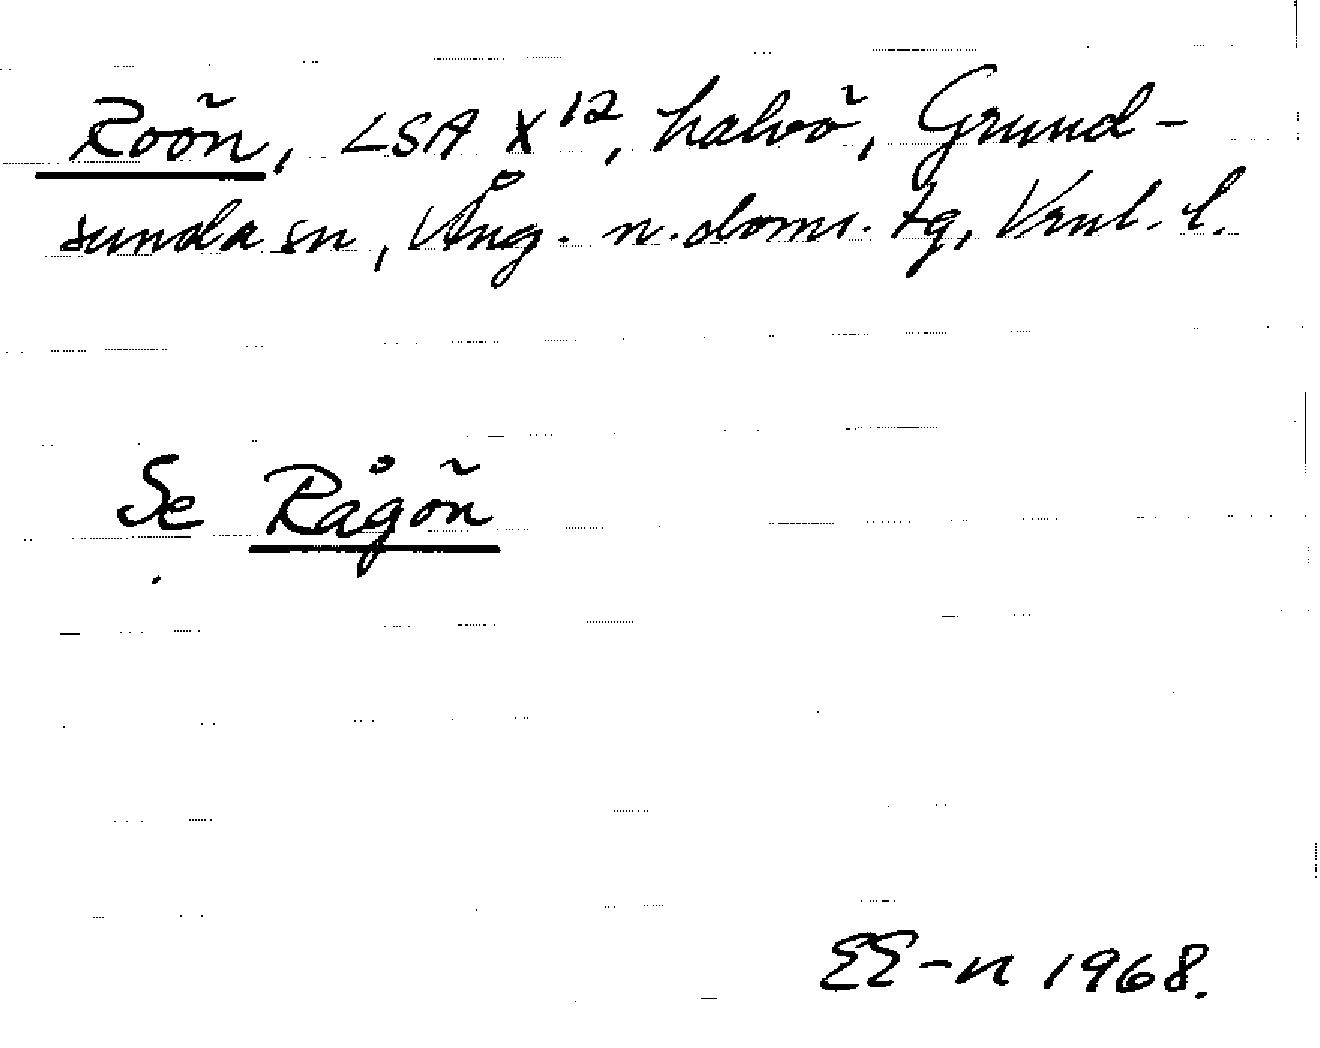 Roön, LSA X 12, halvö, Grund-
sunda sn, Ång. n. doms. tg, Vnl. l.
Se Rågön
EE-n 1968.